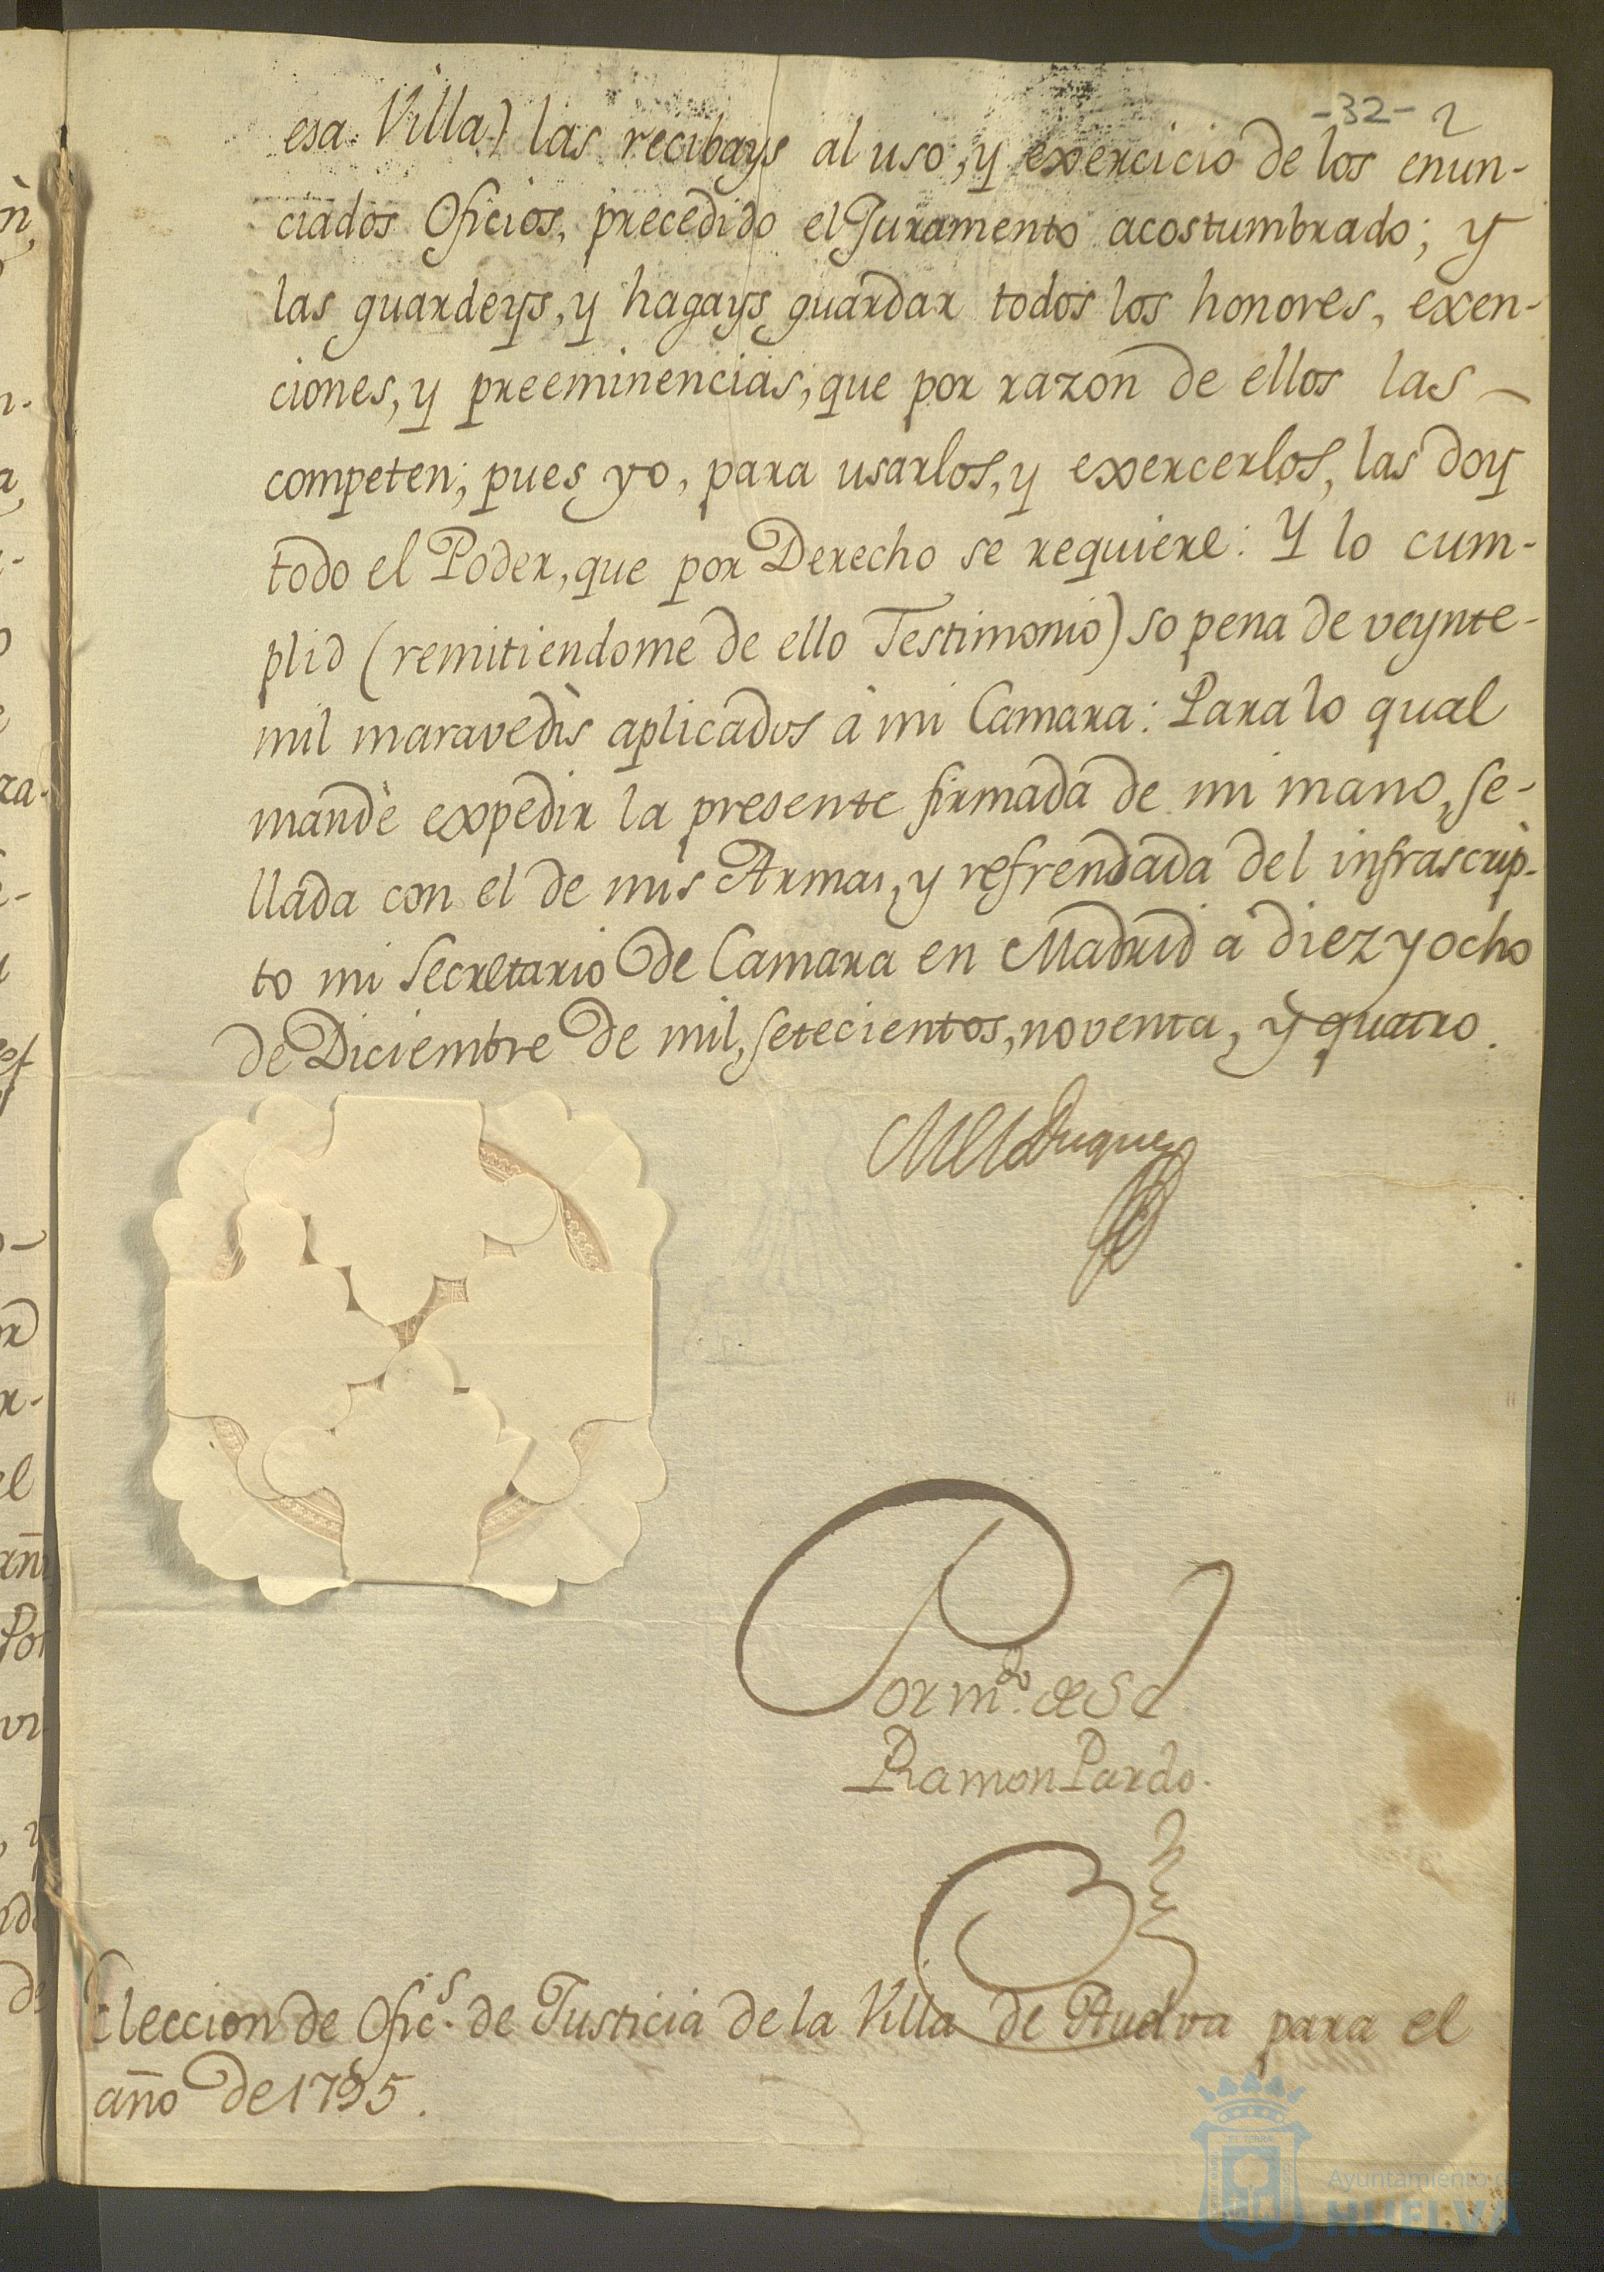 -32- 2
esa Villa) las recibays al uso, y exercicio de los enun-
ciados Oficios, precedido el Juramento acostumbrado; y
las guardeys, y hagays guardar todos los honores, exen-
ciones, y preeminencias, que por razon de ellos las
competen; pues yo, para usarlos, y exercerlos, las doy
todo el Poder, que por Derecho se requiere: Y lo cum-
plid (remitiendome de ello Testimonio) so pena de veynte
mil maravedìs aplicados à mi Camara: Para lo qual
mandè expedir la presente firmada de mi mano, se-
llada con el de mis Armas, y refrendada del infrascrip-
to mi Secretario de Camara en Madrid à diez y ocho
de Diciembre de mil, setecientos, noventa, y quatro.
Duque
Por m.do de S E
Ramon Pardo.
Eleccion de Ofic.s de Justicia de la Villa de Huelva para el
año de 1795.
Ayuntamiento de
HUELVA